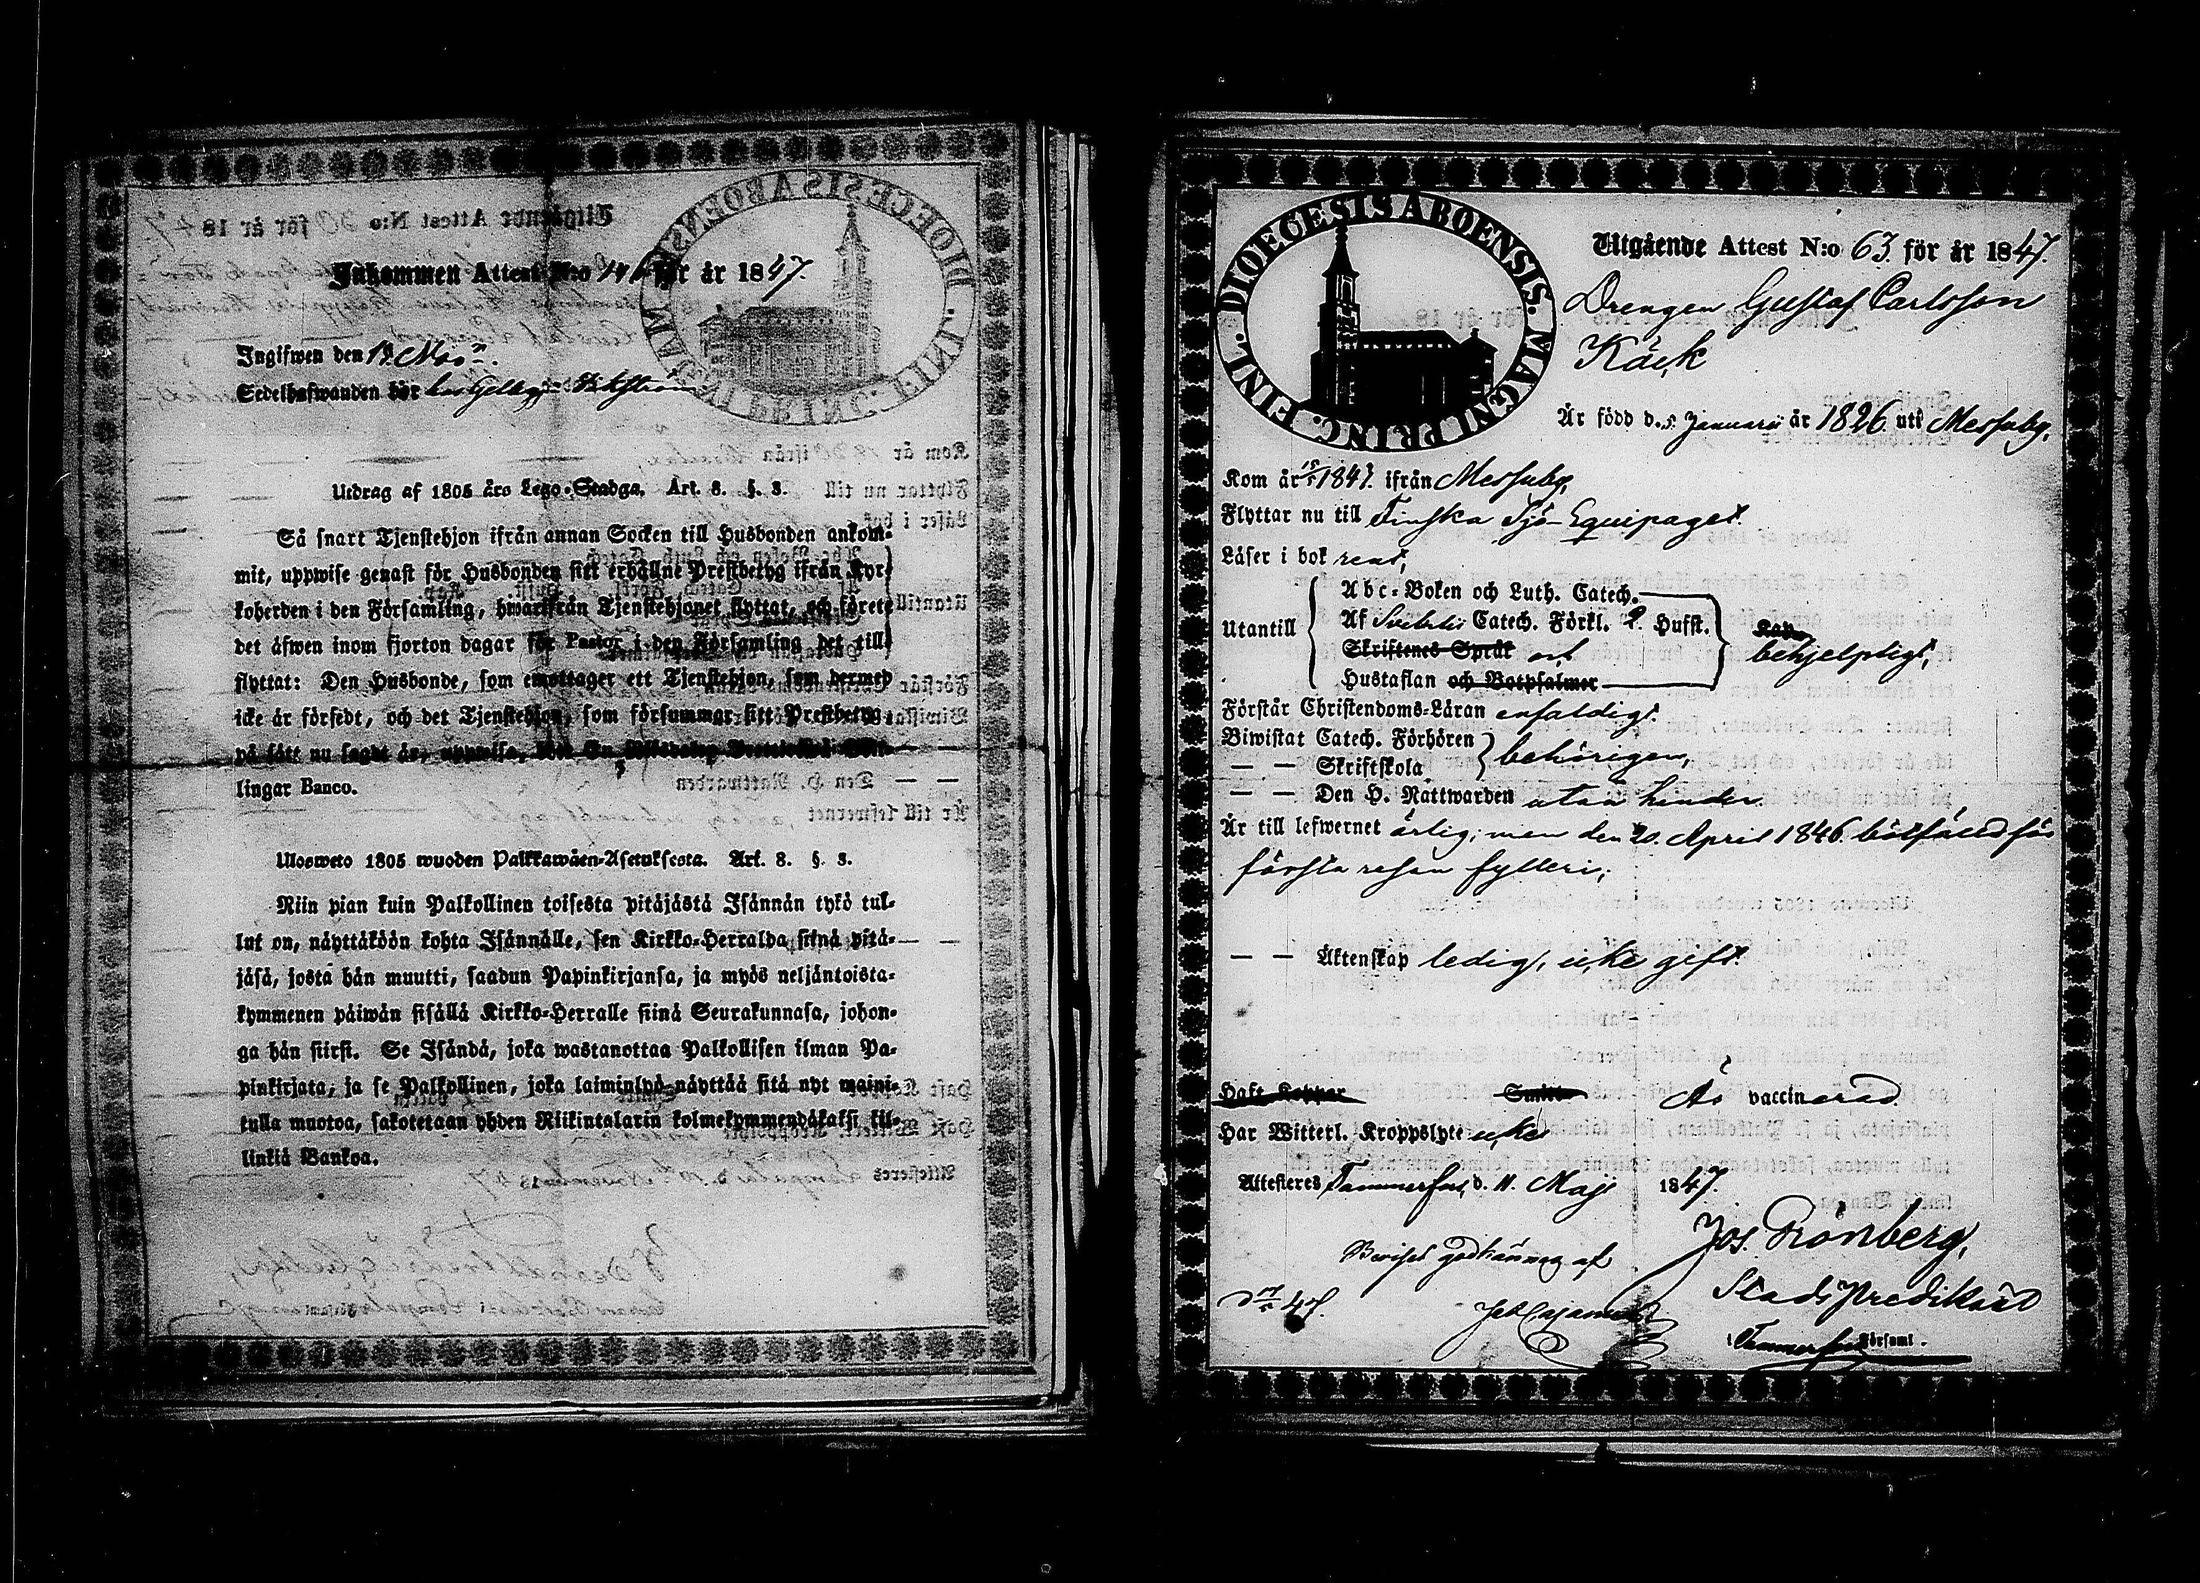 Inkommen Attest N:o för år 1847.
Ingifwen den 19
Sedelhafwanden bör
Utdrag af 1805 års Lego-Stadga. Art. 8. §. 3.
Så snart Tjenstehjon ifrån annan Socken till Husbonden ankom-
mit, uppwise genast för Husbonden sitt erhållne Prestbetyg ifrån Kyr-
koherden i den Församling, hwarifrån Tjenstehjonet flyttat, och förete
det äfwen inom fjorton dagar för Pastor i den Församling det till-
flyttat: Den Husbonde, som emottager ett Tjenstehjon, som dermed
icke är försedt, och det Tjenstehjon, som försummar sitt Prestbetyg
på sätt nu sagdt är, uppwisa,
lingar Banco.
Ulosweto 1805 wuoden Palkkawäen-Asetuksesta. Art. 8. §. 3.
Niin pian kuin Palkollinen toisesta pitäjästä Isännän tykö tul-
lut on, näyttäköön kohta Isännälle, sen Kirkko-Herralda siinä pitä-
jäsä, josta hän muutti, saadun Papinkirjansa, ja myös neljäntoista-
kymmenen päiwän sisällä Kirkko-Herralle siinä Seurakunnasa, johon-
ga hän siirsi. Se Isändä, joka wastanottaa Palkollisen ilman Pa-
pinkirjata, ja se Palkollinen, joka laiminlyö näyttää sitä nyt maini-
tulla muotoa, sakotetaan yhden Riikintalarin kolmekymmendäkaksi kil-
linkiä Bankoa.
DIOECESIS ABOENSIS. MAGNI PRINC. FINL.
Utgående Attest N:o 63 för år 1847.
Drengen Gustaf Carlsson
Käck
Är född d. 5 Januarii år 1826 uti Messuby.
Kom år 1847. ifrån Messuby,
Flyttar nu till Finska Sjö-Equipaget.
Läser i bok rent,
Utantill
Abc-Boken och Luth. Catech.
Af Svebelii Catech. Förkl. 2. Husst.
Skriftenes Språk och
Hustaflan och Botpsalmer
behjelpligt,
Förstår Christendoms-Läran enfaldigt.
Biwistat Catech. Förhören
— — Skriftskola
behörigen,
— — Den H. Nattwarden utan hinder.
Är till lefwernet ärlig; men den 20. April 1846. bötfälld för
första resan fylleri;
— — Äktenskap ledig, icke gift.
Haft Koppor Smitto Är vaccinerad.
Har Witterl. Kroppslyte icke
Attesteres Tammerfors, d. 11. Maji 1847.
Jos. Grönberg,
Beviset godkännes af
Stads Predikant
47.
i Tammerfors Församl.